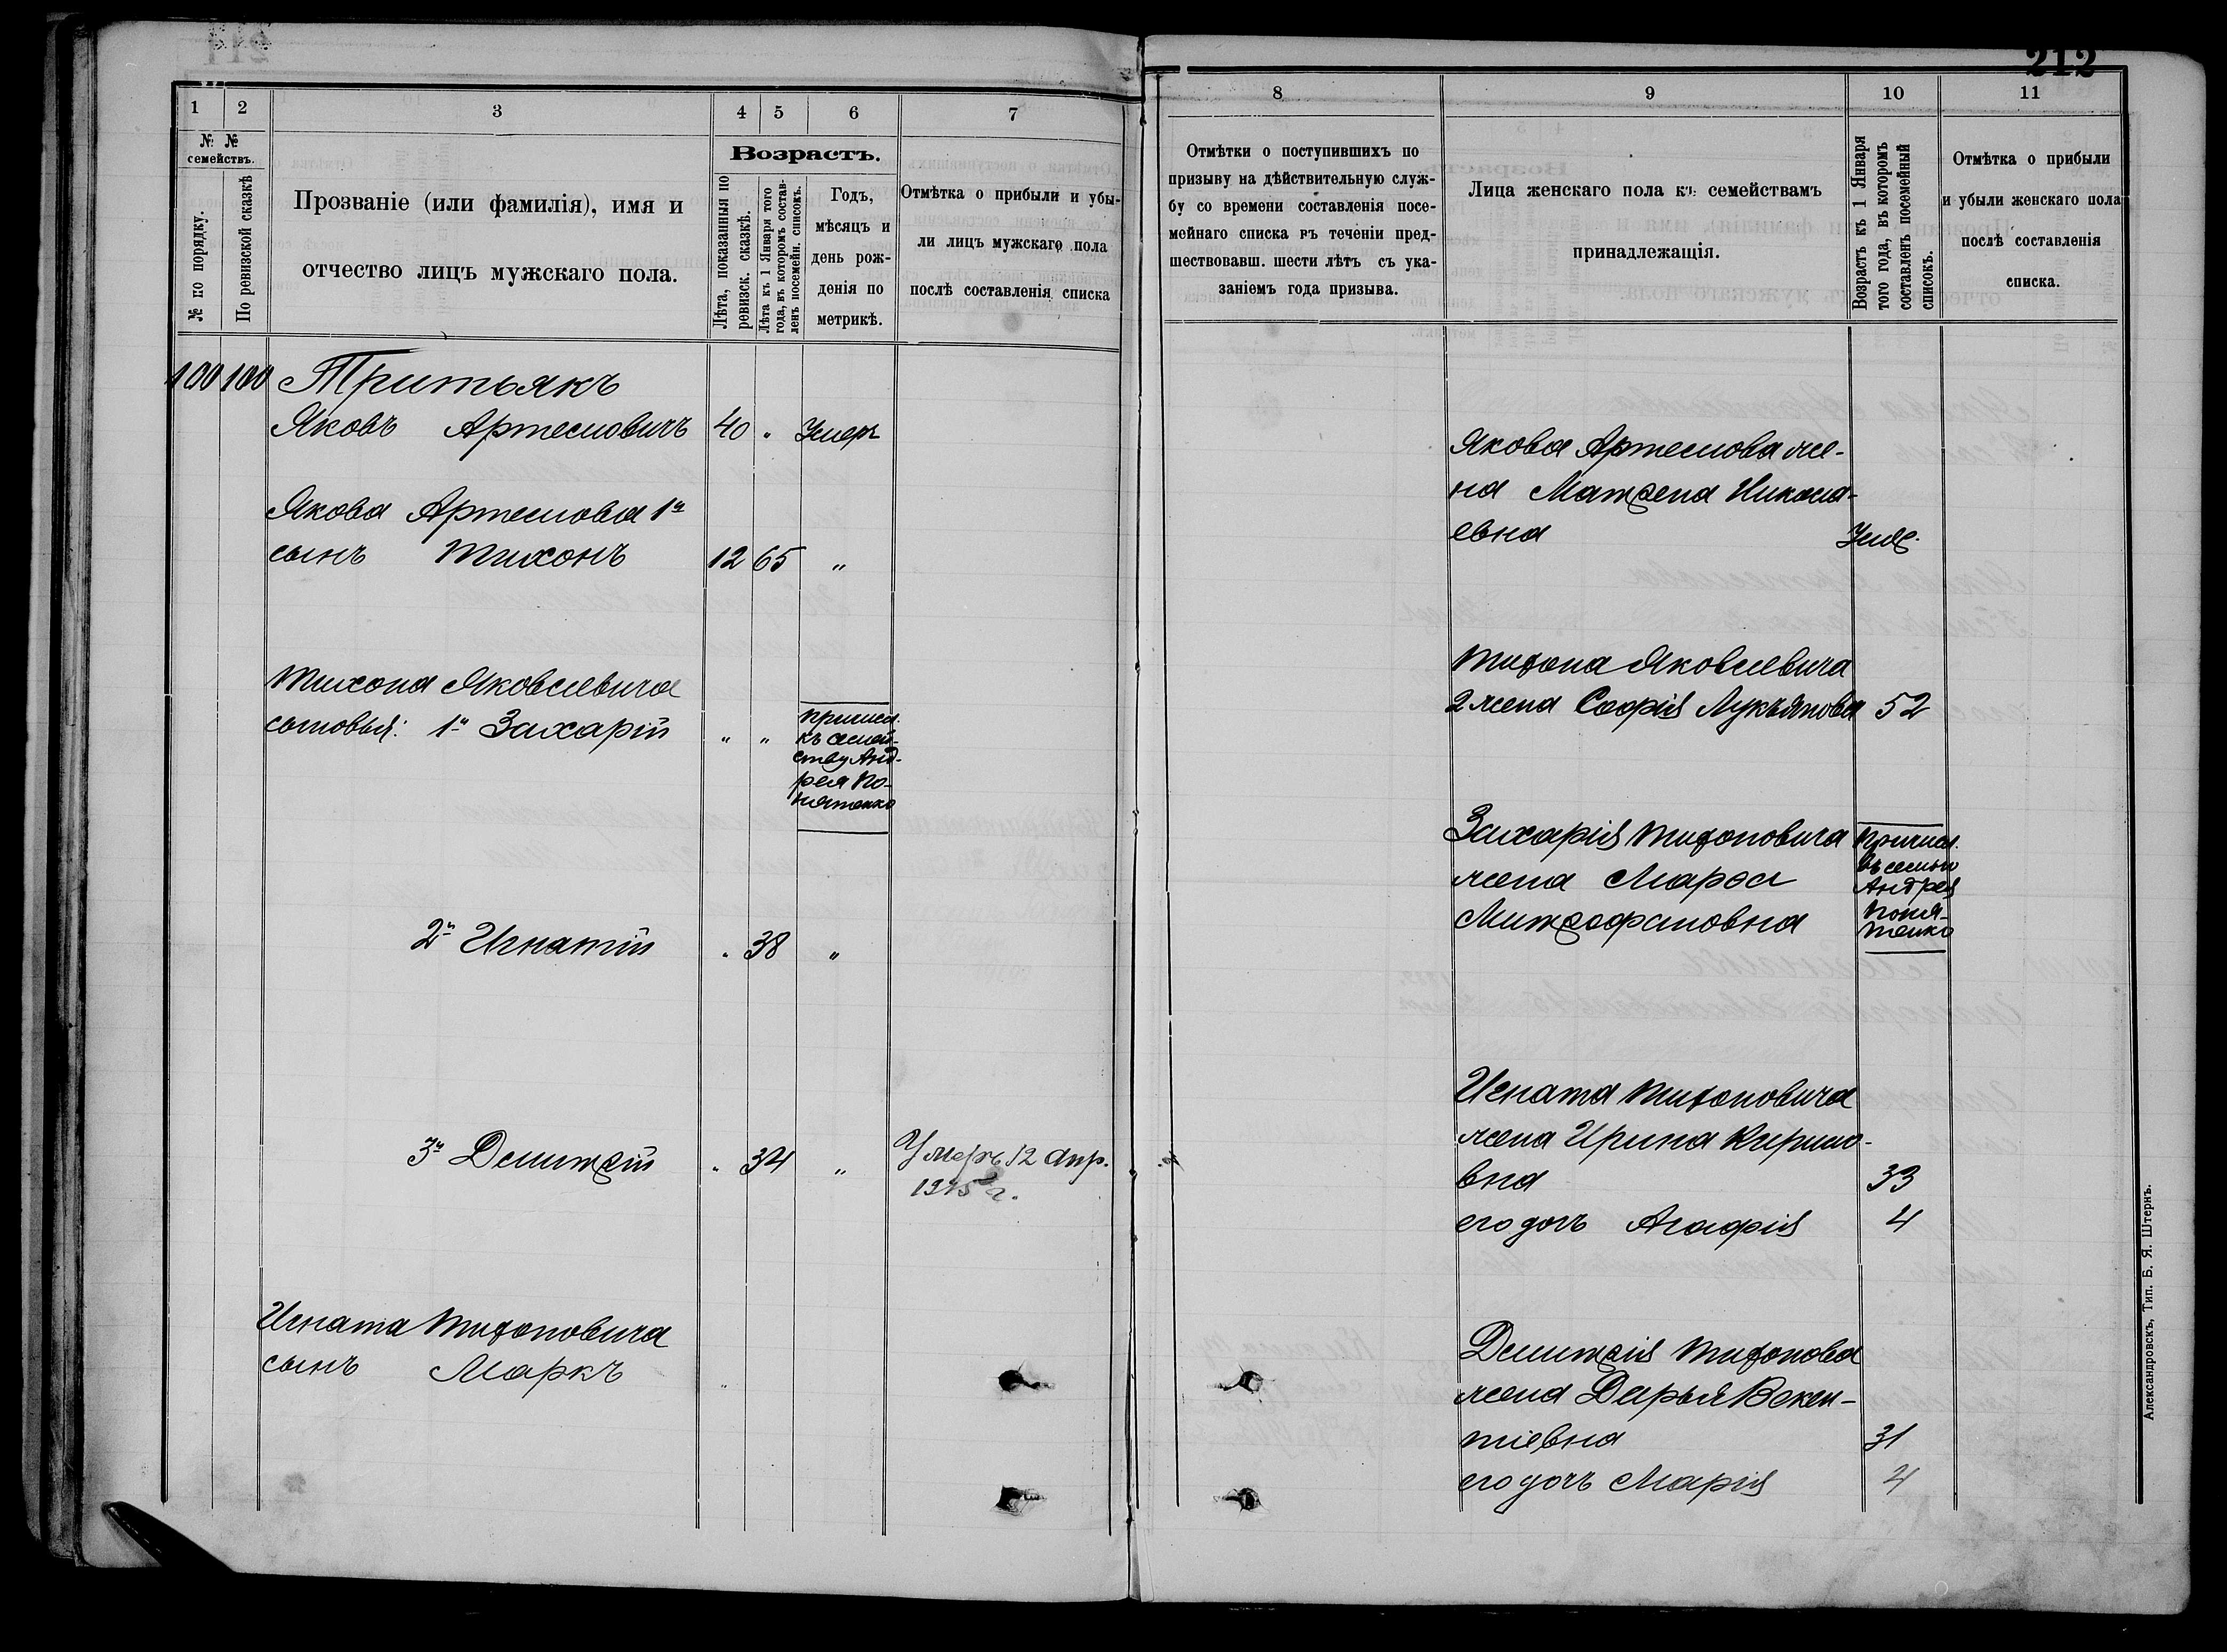 212
1
2
3
4
5
6
7
8
9
10
11
№ №
семействъ.
№ по порядку.
По ревизской сказкѣ
Прозваніе (или фамилія), имя и
отчество лицъ мужскаго пола.
Возрастъ.
Лѣта, показанныя по
ревизск. сказкѣ.
Лѣта къ 1 Января того
года, въ которомъ состав-
ленъ посемейн. списокъ.
Годъ,
мѣсяцъ и
день рож-
денія по
метрикѣ.
Отмѣтка о прибыли и убы-
ли лицъ мужскаго пола
послѣ составленія списка
Отмѣтки о поступившихъ по
призыву на дѣйствительную служ-
бу со времени составленія посе-
мейнаго списка въ теченіи пред-
шествовавш. шести лѣтъ съ ука-
заніемъ года призыва.
Лица женскаго пола къ семействамъ
принадлежащія.
Возрастъ къ 1 Января
того года, въ которомъ
составленъ посемейный
списокъ.
Отмѣтка о прибыли
и убыли женскаго пола
послѣ составленія
списка.
100 100 Притьякъ
Яковъ Артемовичъ 40 " Умеръ
Якова Артемова 1й
сынъ Тихонъ 12 65 "
Тихона Яковлевича
сыновья: 1й Захарій " "
причисл.
къ семей-
ству Анд-
рея По-
нятенко
2й Игнатій " 38 "
3й Димитрій " 34 " Умеръ 12 апр.
1915 г.
Игната Тихоновича
сынъ Маркъ "
Якова Артемова же-
на Матрена Никола-
евна Умер.
Тихона Яковлевича
2 жена Софія Лукьянова 52
Захарія Тихоновича
жена Марфа
Митрофановна
Причисл.
въ семью
Андрея
Поня-
тенко
Игната Тихоновича
жена Ирина Кирило-
вна 33
его дочь Агафія 4
Димитрія Тихонова
жена Дарья Викен-
тіевна 31
его дочь Марія 4
Александровскъ, Тип. Б. Я. Штернъ.